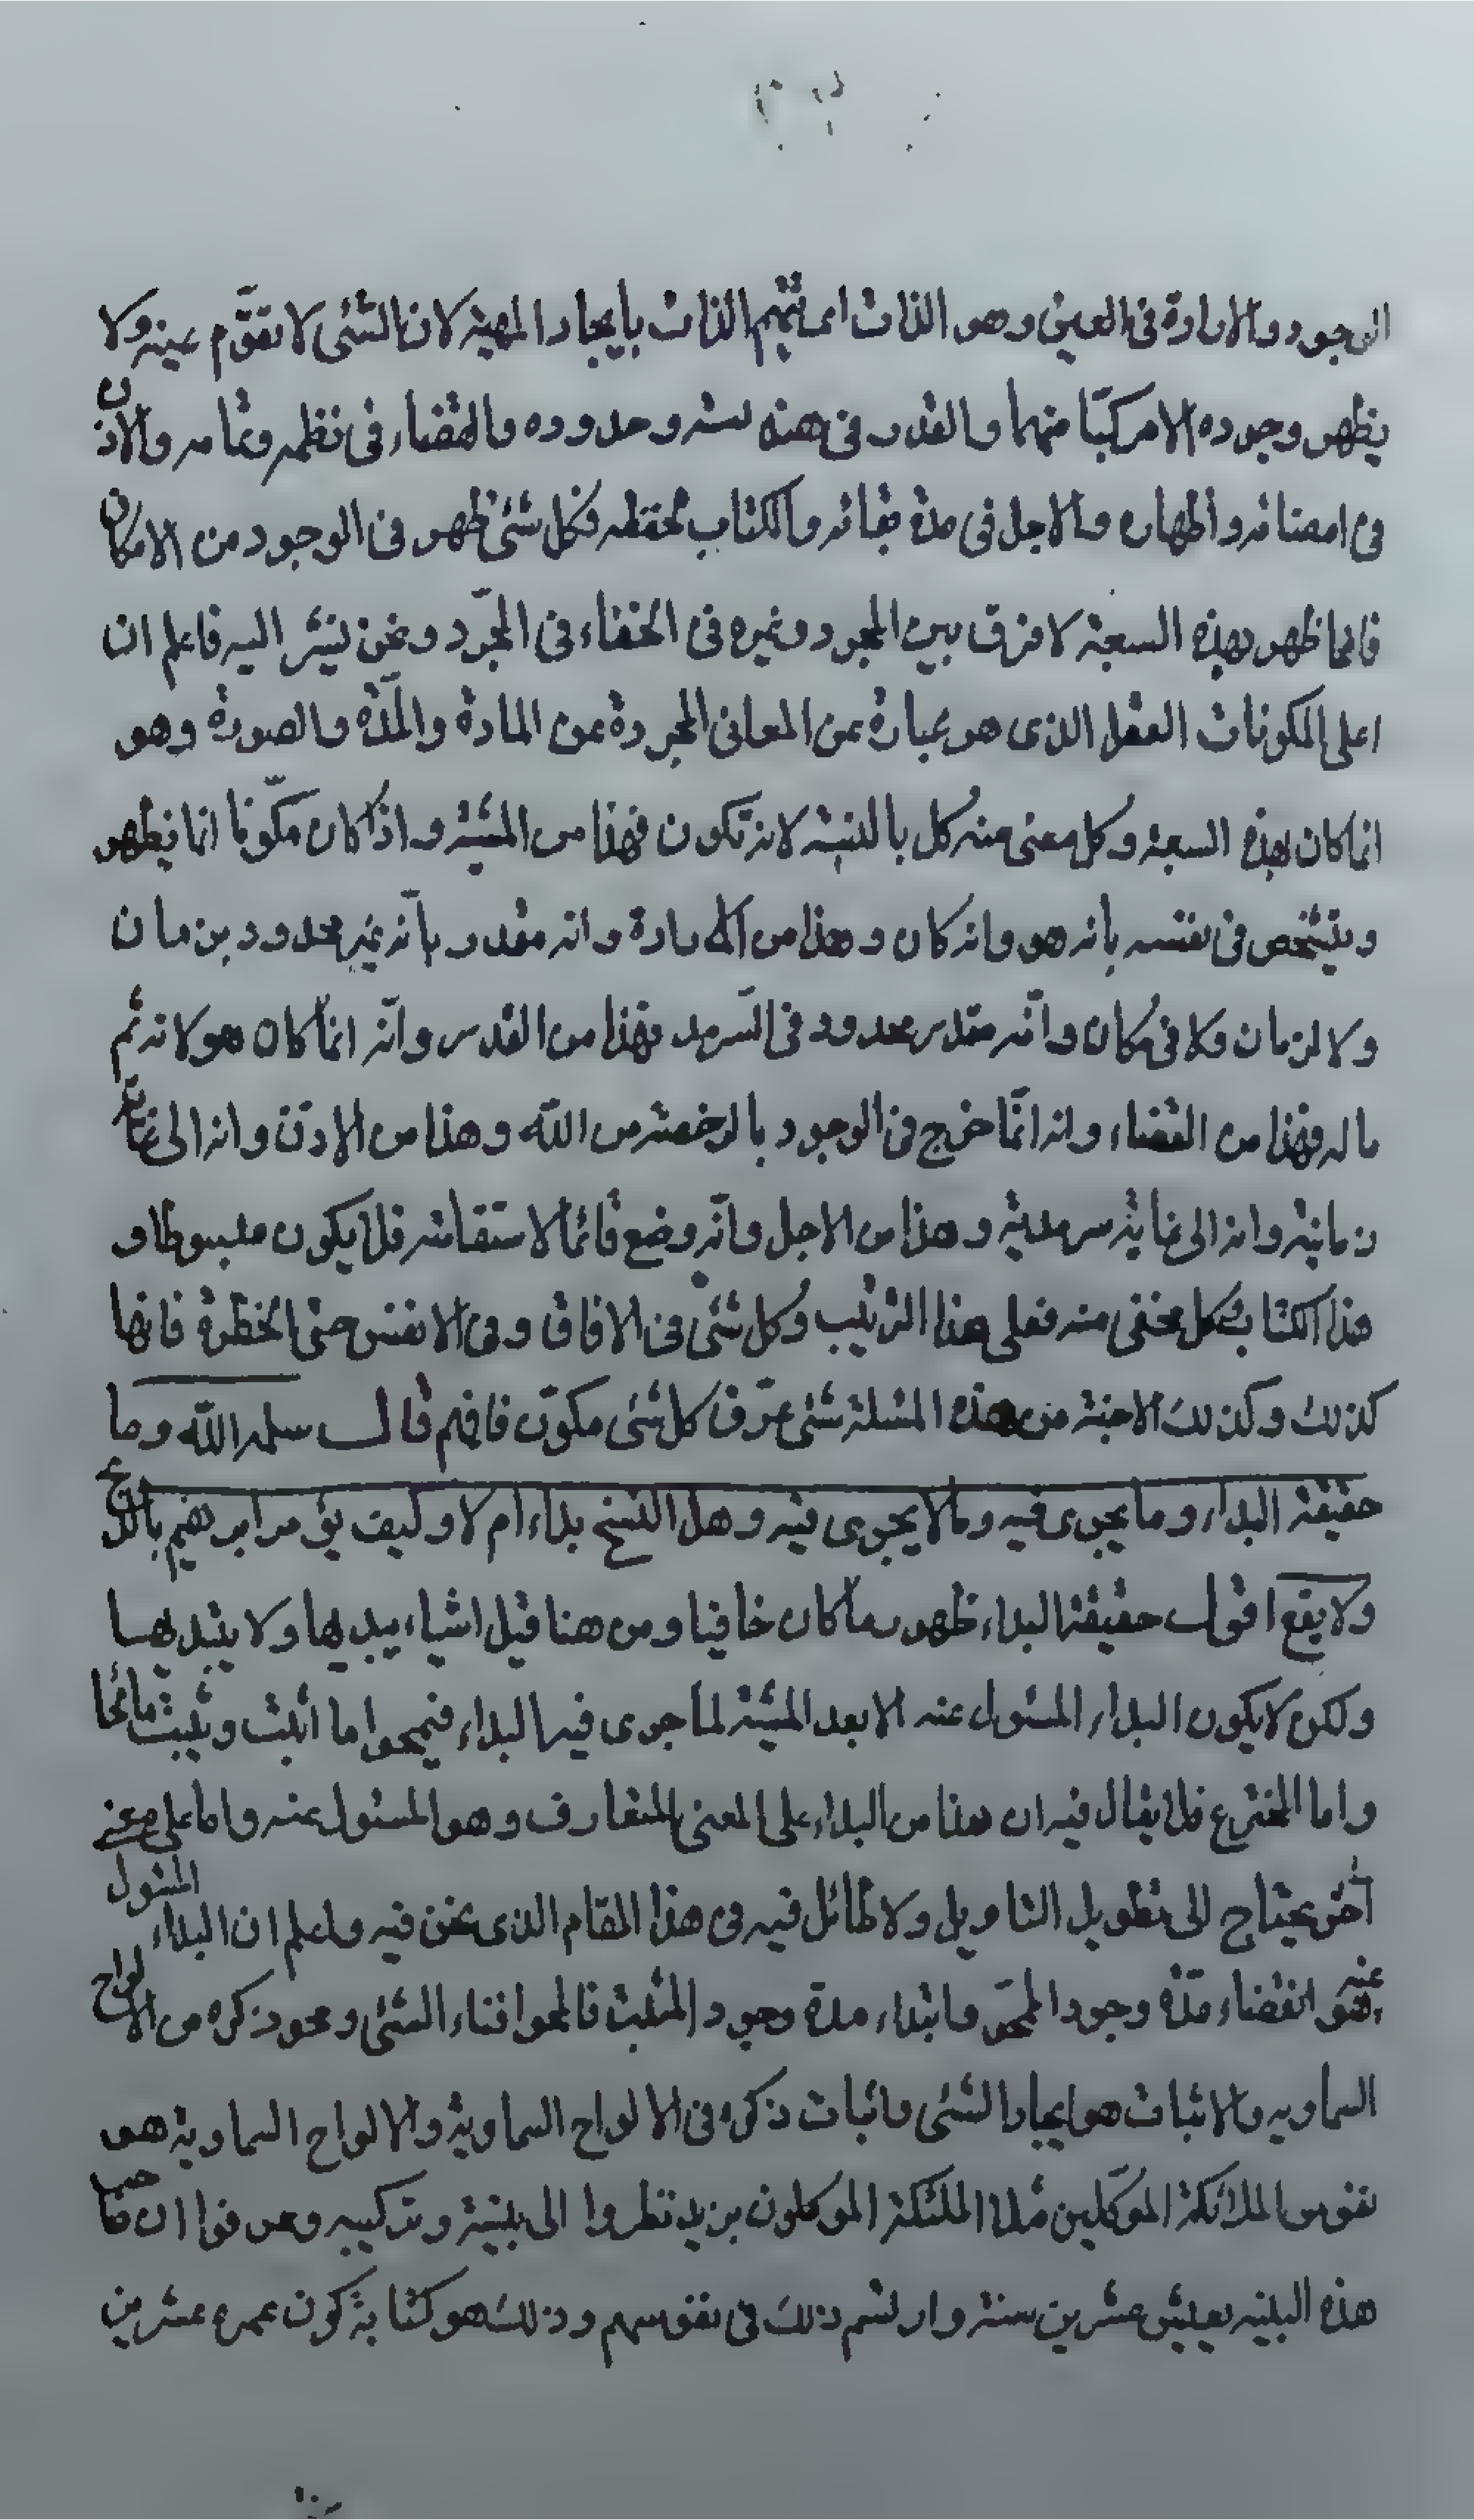 الوجود والارادة فى العين وهو الذات اى تتميم الذات بايجاد المهية لان الشئ لا تقوّم عينه ولا
يظهر وجوده الا مركبّا منهما والقدر فى هندسته وحدوده والقضاء فى نظمه وتمامه والاذن
فى امضائه واظهاره والاجل فى مدة بقائه والكتاب لحفظه فكل شئ ظهر فى الوجود من الامكان
فانما ظهر بهذه السبعة لا فرق بين المجرد وغيره فى الخفاء فى المجرّد ونحن نشير اليه فاعلم ان
اعلى المكونات العقل الذى هو عبارة عن المعانى المجردة عن المادة والمدّة والصورة وهو
انما كان بهذه السبعة وكل معنى منه كل بالنسبة لانه تكون فهذا من المشية واذا كان مكوّنا انما يظهر
ويتشخص فى نفسه بانه هو وانه كان وهذا من الارادة وانه مقدر بانّه غير محدود بزمان
ولا لزمان ولا فى مكان وانّه مقدر محدود فى السّرمد فهذا من القدر وانّه انما كان هو لانه تم
ما له فهذا من القضاء وانه انّما خرج فى الوجود بالرخصة من اللّه وهذا من الاذن وانه الى غاية
زمانية وانه الى غاية سرمدية وهذا من الاجل وانّه وضع قائما لاستقامته فلا يكون مبسوطا و
هذا الكتاب بكل معنى منه فعلى هذا الترتيب وكل شئ فى الافاق وفى الانفس حتى الخطرة فانها
كذلك وكذلك الاجنة من هذه المسئلة شئ عرّف كل شئ مكوّن فافهم قال سلمه اللّه وما
حقيقة البداء وما يجرى فيه وما لا يجرى فيه وهل النسخ بداء ام لا وكيف يؤمر ابرهيم بالذبح
ولا يقع اقول حقيقة البداء ظهور ما كان خافيا ومن هنا قيل اشياء يبديها ولا يبتديها
ولكن لا يكون البداء المسئول عنه الا بعد المشية لما جرى فيه البداء فيمحوا ما اثبت ويثبت ما محا
واما المخترع فلا يقال فيه ان هذا من البداء على المعنى المتعارف وهو المسئول عنه واما على معنى
آخر يحتاج الى تطويل التاويل ولا طائل فيه فى هذا المقام الذى نحن فيه واعلم ان البداء المسئول
عنه هو انقضاء مدّة وجود الممحوّ وابتداء مدة وجود المثبت فالمحو افناء الشئ ومحو ذكره من الالواح
السماويه والاثبات هو ايجاد الشئ واثبات ذكره فى الالواح السماوية والالواح السماوية هى
نفوس الملائكة الموكلين مثلا الملئكة الموكلون بزيد نظروا الى بنيته وتركيبه وعرفوا ان صاحب
هذه البنيه يعيش عشرين سنة وارتسم ذلك فى نفوسهم وذلك هو كتابة كون عمره عشرين